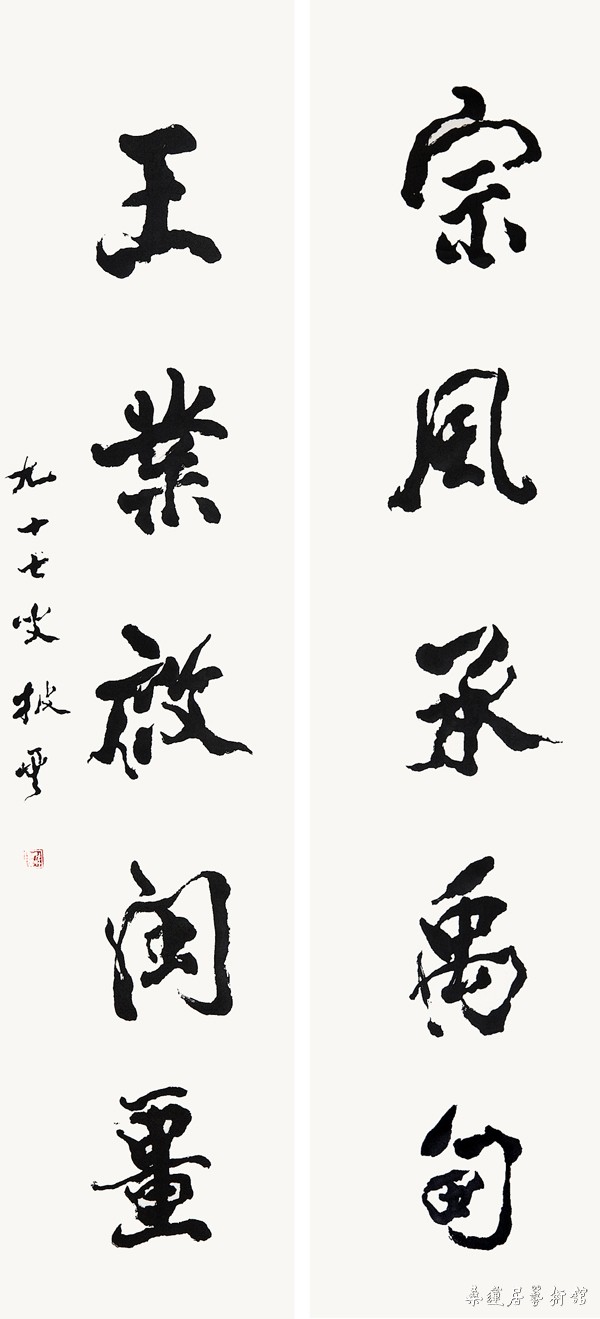 宗風承禹甸
王業啟閩畺
九十七叟披雲
桑蓮居藝術館